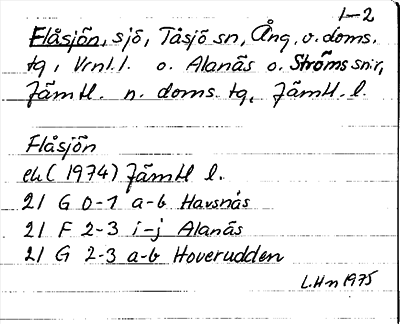 1-2
Flåsjön, sjö, Tåsjö sn, Ång. v. doms.
tg, Vrnl. l. o. Alanäs o. Ströms snr,
Jämtl. n. doms. tg, Jämtl. l.
Flåsjön
ek (1974) Jämtl l.
21 G 0-1 a-b Havsnäs
21 F 2-3 i-j Alanäs
21 G 2-3 a-b Hoverudden
L.Hn 1975